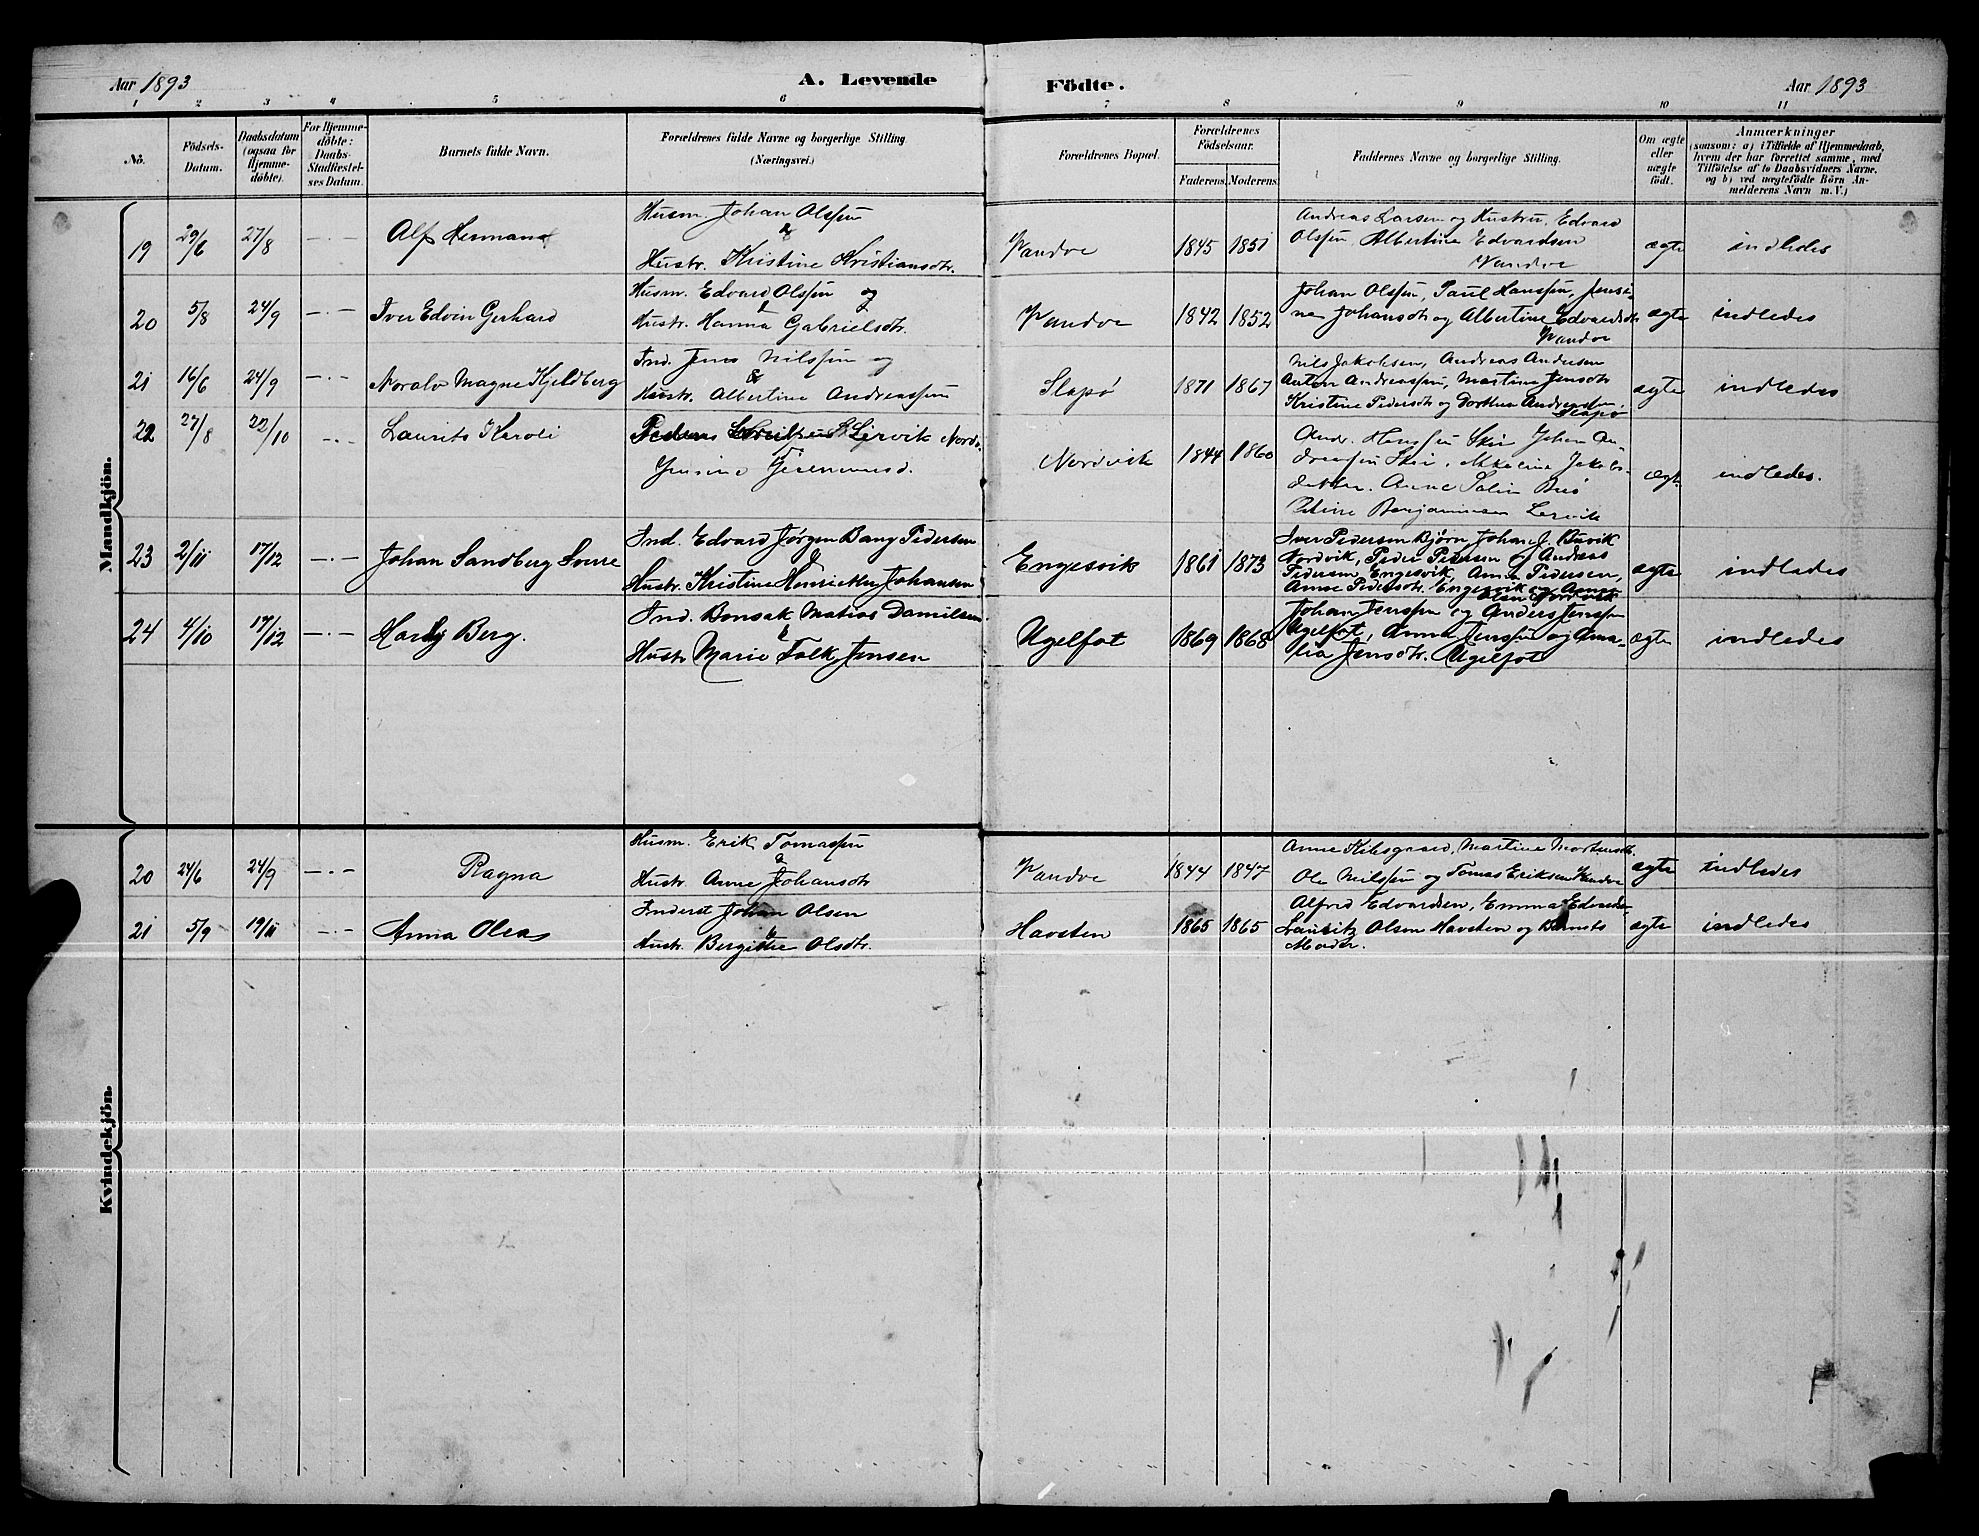 Aar 1893 A. Levende Födte. Aar 1893
1 2 3 4 5 6 7 8 9 10 11
No. Födsels-Datum. Daabsdatum (ogsaa for Hjemme-döbte). For Hjemme-döbte: Daabs-Stadfæstel-ses Datum. Barnets fulde Navn. Forældrenes fulde Navne og borgerlige Stilling (Næringsvei.) Forældrenes Bopæl. Forældrenes Födselsaar. Faderens Moderens Faddernes Navne og borgerlige Stilling. Om ægte eller uægte födt. Anmærkninger
(saasom: a) i Tilfælde af Hjemmedaab,
hvem der har forrettet samme, med
Tilföielse af to Daabsvidners Navne,
og b) ved uægtefödte Börn An-
melderens Navn m. V.)
Mandkjön.
19 29/6 27/8 -.- Alf Herman Husm. Johan Olssen
&
Hustr. Kristine Kristiansdtr. Vandve 1845 1851 Andreas Larsen og Hustru, Edvard
Olssen, Albertine Edvardsen
Vandve ægte indledes
20 5/8 24/9 -.- Iver Edvin Gerhard Husm. Edvard Olssen og
Hustr. Hanna Gabrielsdtr. Vandve 1842 1852 Johan Olssen, Paul Hanssen, Jensi-
na Johansdtr og Albertine Edvardsdtr
Vandve ægte indledes
21 16/6 24/9 -.- Noralv Magne Kjeldberg Ind. Jens Nilssen og
&
Hustr. Albertine Andreassen Slapø 1871 1867 Nils Jakobsen, Andreas Andersen
Anton Andreassen, Martine Jensdtr
Kristine Pedersdtr og Dorthea Andreasdtr.
Slapø ægte indledes
22 27/8 22/10 -.- Laurits Karoli Lervik Nordv.
Jensine Nordvik 1844 1860 Andr. Hanssen Skei Johan An-
dreassen Skei, Jakobs-
datter. Anne
Benjaminsen Lervik ægt. indledes.
23 2/11 17/12 -.- Johan Sandberg Ind. Edvard Jørgen Bang Pedersen
&
Hustr. Kristine Henrikke Johansen Engesvik 1861 1873 Iver Pedersen Bjørn, Johan J. Buvik
Nordvik, Peder Pedersen og Andreas
Pedersen Engesvik, Anna Pedersen,
Anne Pedersdtr. Engesvik og Anna
Olsen Nordvik ægte indlades
24 4/10 17/12 -.- Hardy Berg. Ind. Bonsak Matias Danielsen.
&
Hustr Marie Falk Jensen Ugelfot 1869 1868 Johan Jenssen og Anders Jenssen
Ugelfot, Anna Jenssen og Ama-
lia Jensdtr. Ugelfot ægte indledes
Kvindekjön.
20 24/6 24/9 -.- Ragna Husm. Erik Tomassen
&
Hustr Anne Johansdtr Vandve 1844 1847 Anne Kilsgaard, Martine Mortensdtr.
Ole Nilssen og Tomas Eriksen Vandve ægte indledes
21 5/9 19/11 -.- Anna Olea Inderst Johan Olsen
&
Hustr. Bergitte Olsdtr. Havsten 1865 1865 Alfred Edvardsen, Emma Edvards-
Lauritz Olsen Havsten og Barnets
Moder. ægte indledes